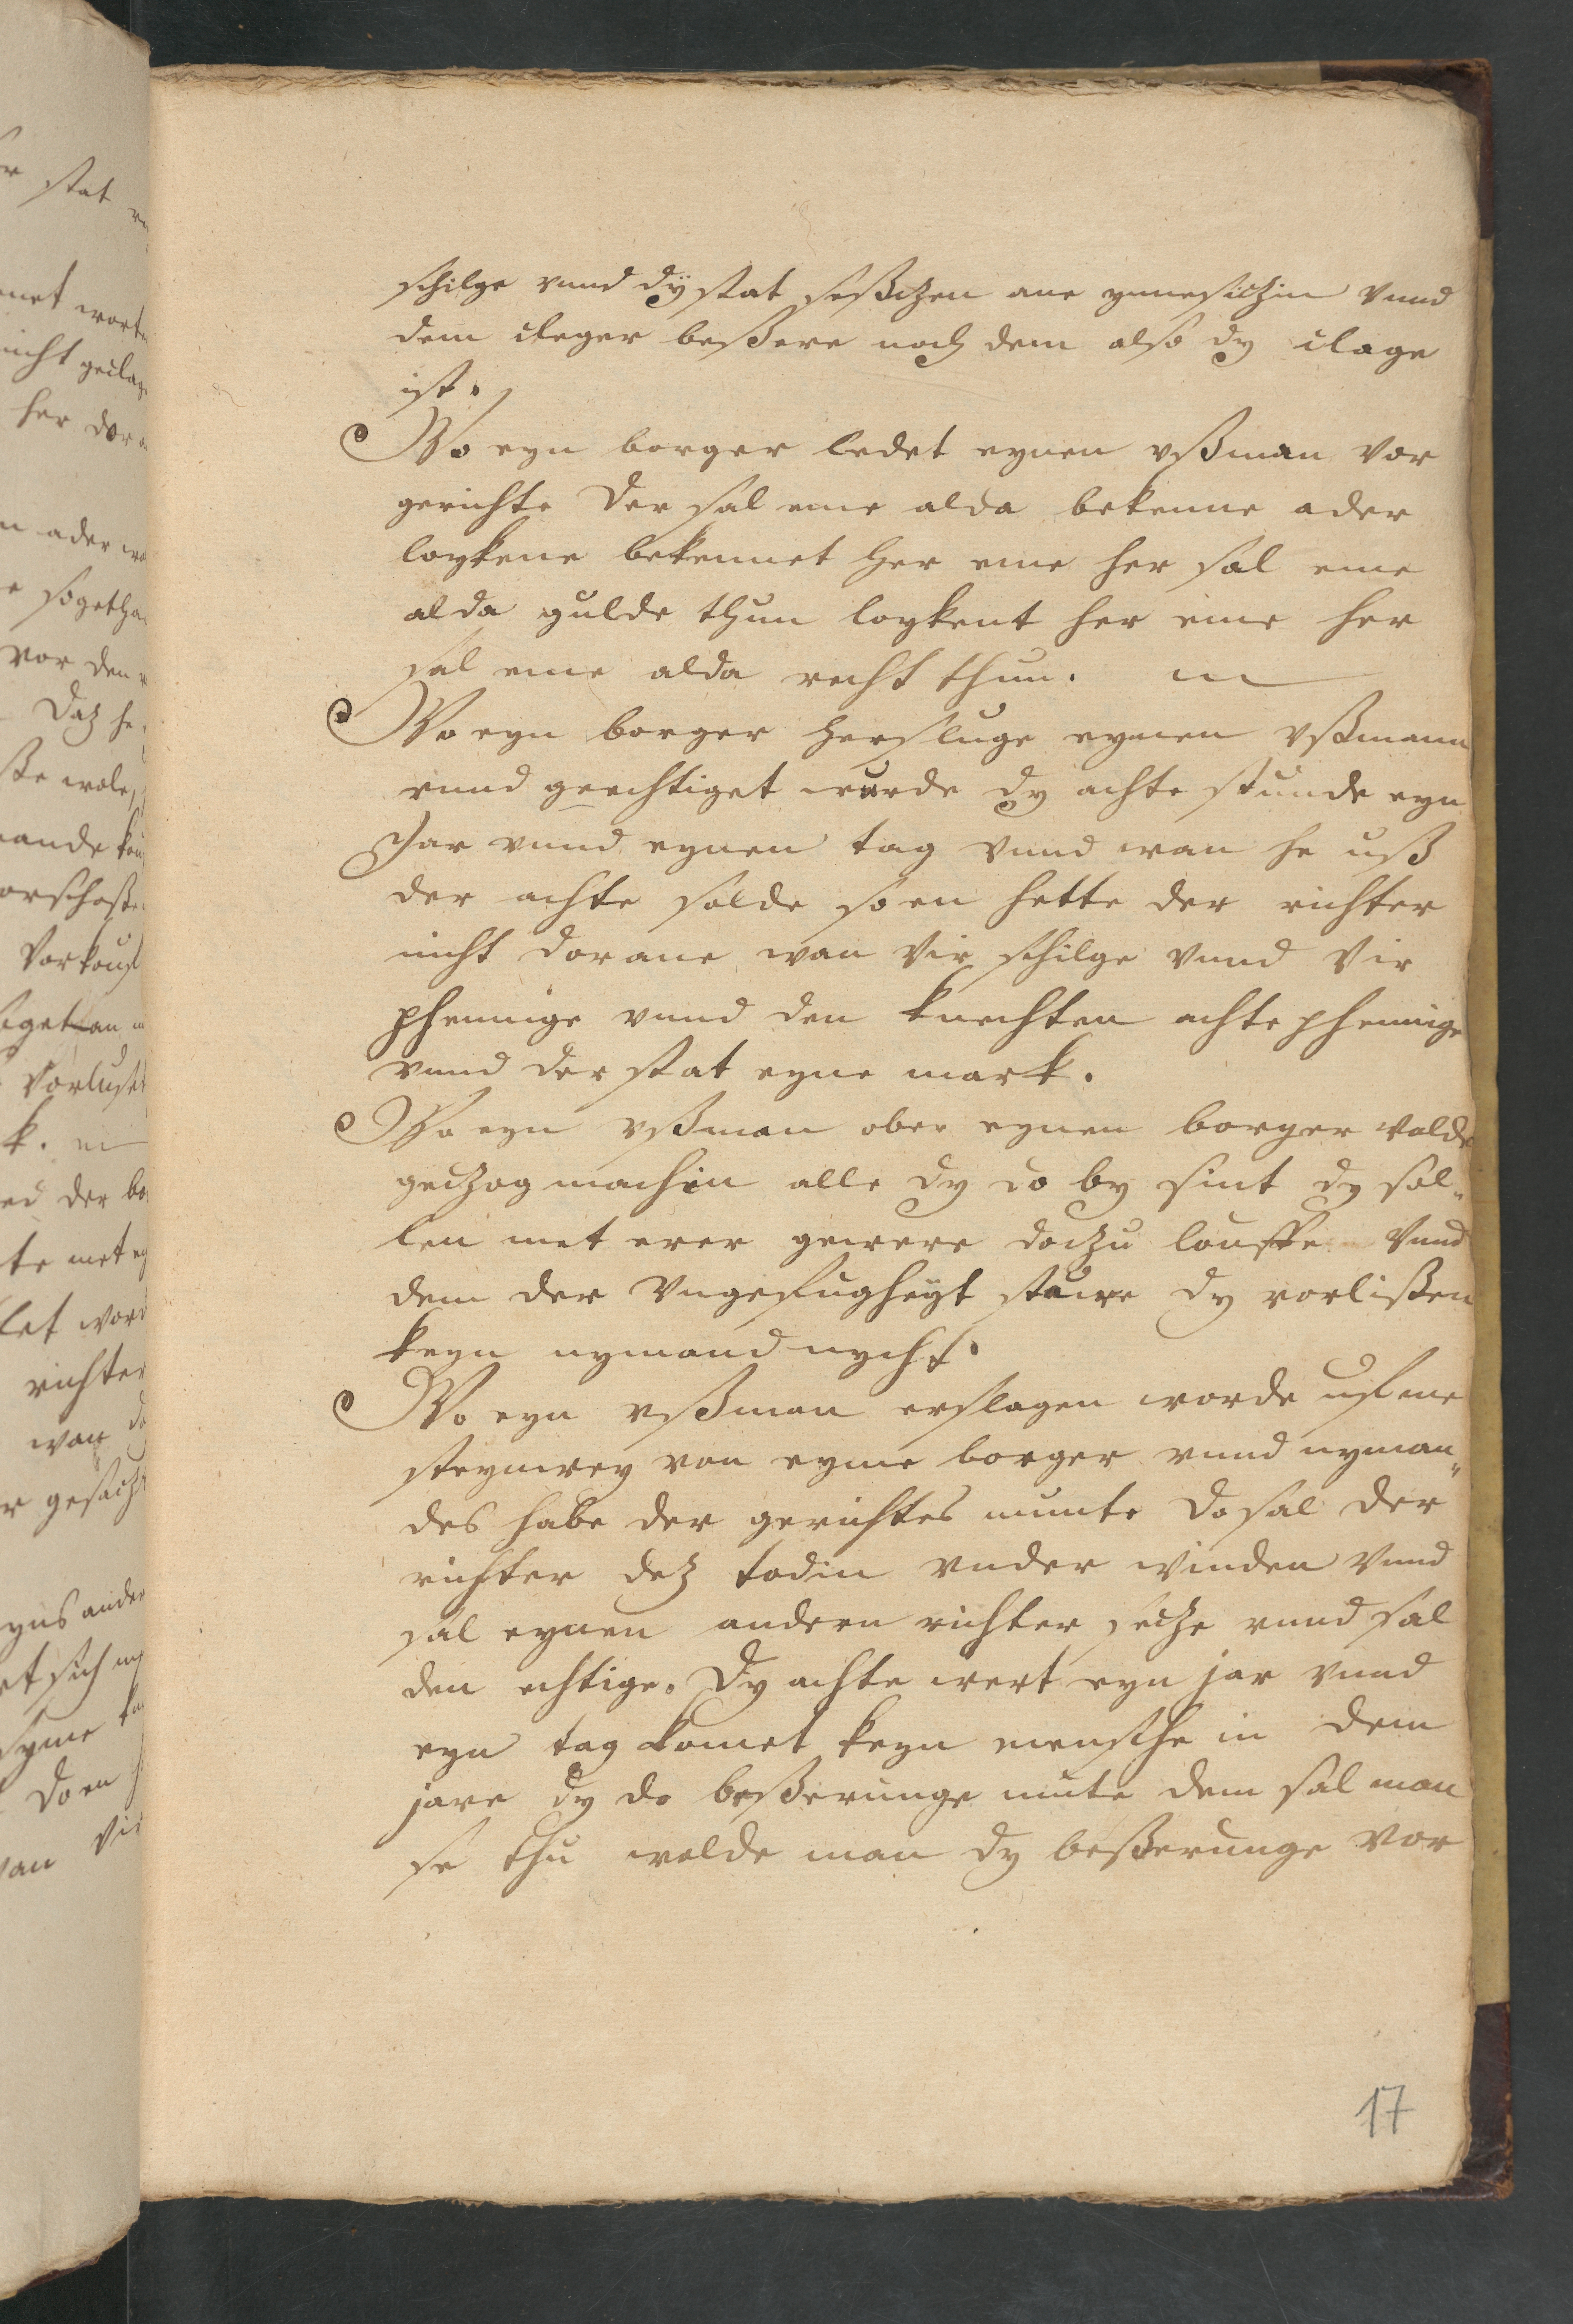 schilge vnnd dÿ stat sesßczen ane ynnesiczin vnnd
dem cleger beßere noch dem also dy clage
ist.
Wo eyn borger ledet eynen vßman vor
gerichte der sal eme alda bekenne ader
loykene bekennet her eme her sal eme
alda gulde thun loykent her eme her
sal eme alda recht thun.
Wo eyn borger herslüge eynen vßmann
vnnd geechtiget würde dy achte stunde eyn
Jar vnnd eynen tag vnnd wan he uß
der achte solde so en hette der richter
nicht dorane wan vir schilge vnnd vir
phennige vnnd den knechten achte phennige
vnnd der stat eyne mark.
Wo eyn vßman ober eynen borger wolde
geczog machin alle dy do by sint dy sol-
len met erer gewere doczu louffe vnnd
dem der vngefugheÿt stuwre dy vorlißen
keyn nymand nycht.
Wo eyn vßman erslagen worde uf me
steynwey von eyme borger vnnd nyman-
des habe der gerichtes muntte do sal der
richter dez todin vnder winden vnnd
sal eynen andern richter secze vnnd sal
den echtige. Dy achte wert eyn jar vnnd
eyn tag komet keyn mensche in dem
jare dy do beßerunge mute dem sal man
se thu wolde man dy beßerunge vor
17